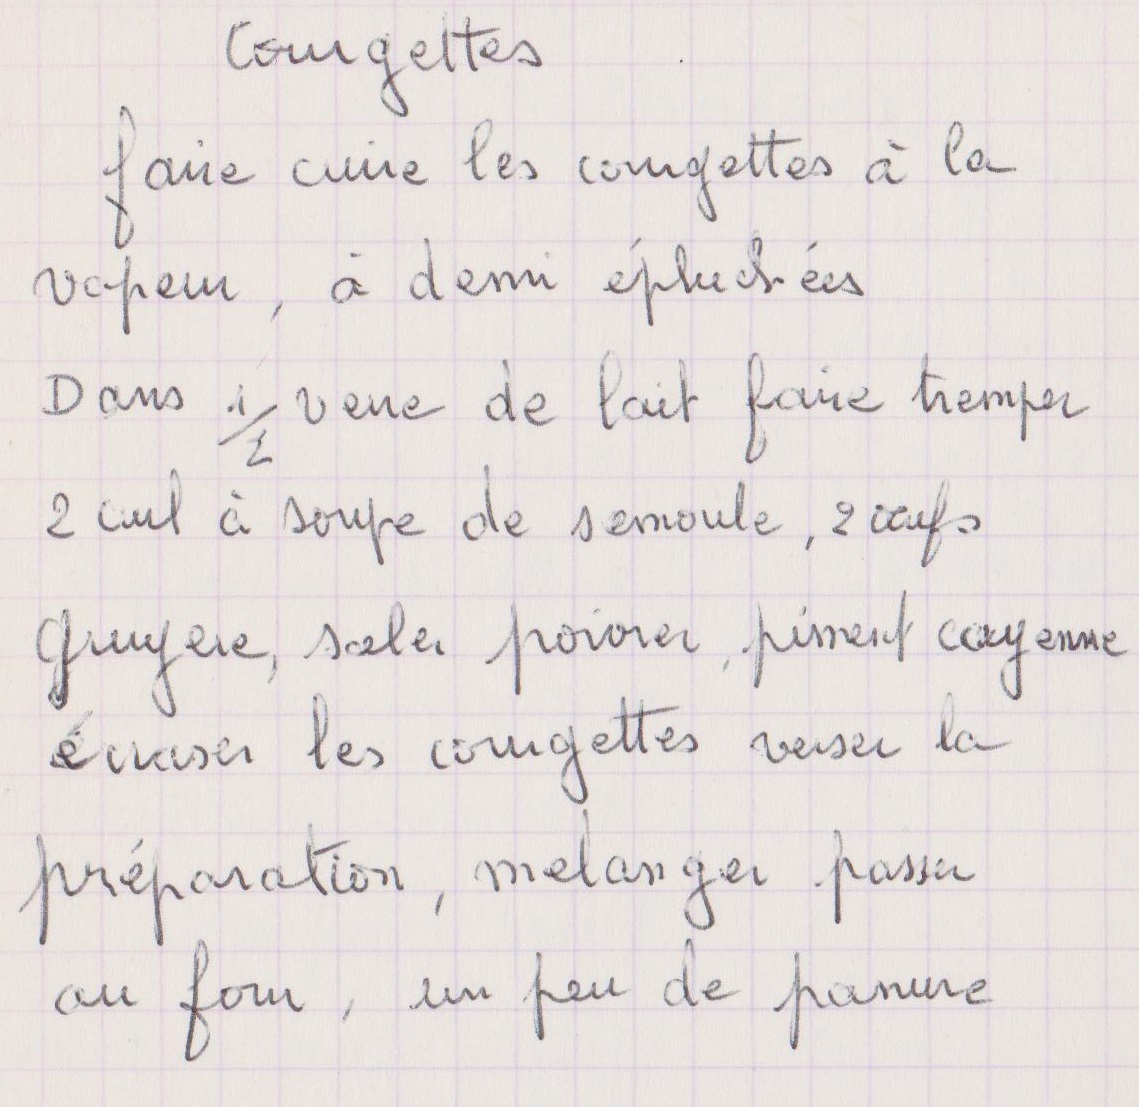 Courgettes
faire cuire les courgettes à la
vapeur, à demi épluchées
Dans 1/2 verre de lait faire tremper
2 cuil à soupe de semoule, 2 œufs
gruyere, saler poivrer, piment cayenne
écraser les courgettes verser la
préparation, melanger passer
au four, un peu de panure